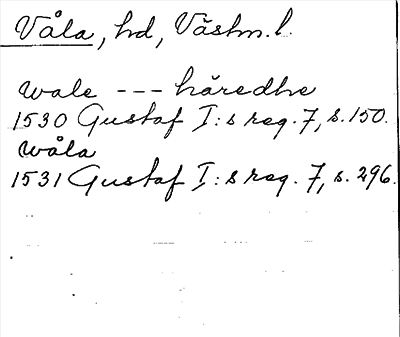 Våla, hd, Västm. l.
wale --- häredhe
1530 Gustaf I:s reg. 7, s. 150.
wåla
1531 Gustaf I:s reg. 7, s. 296.